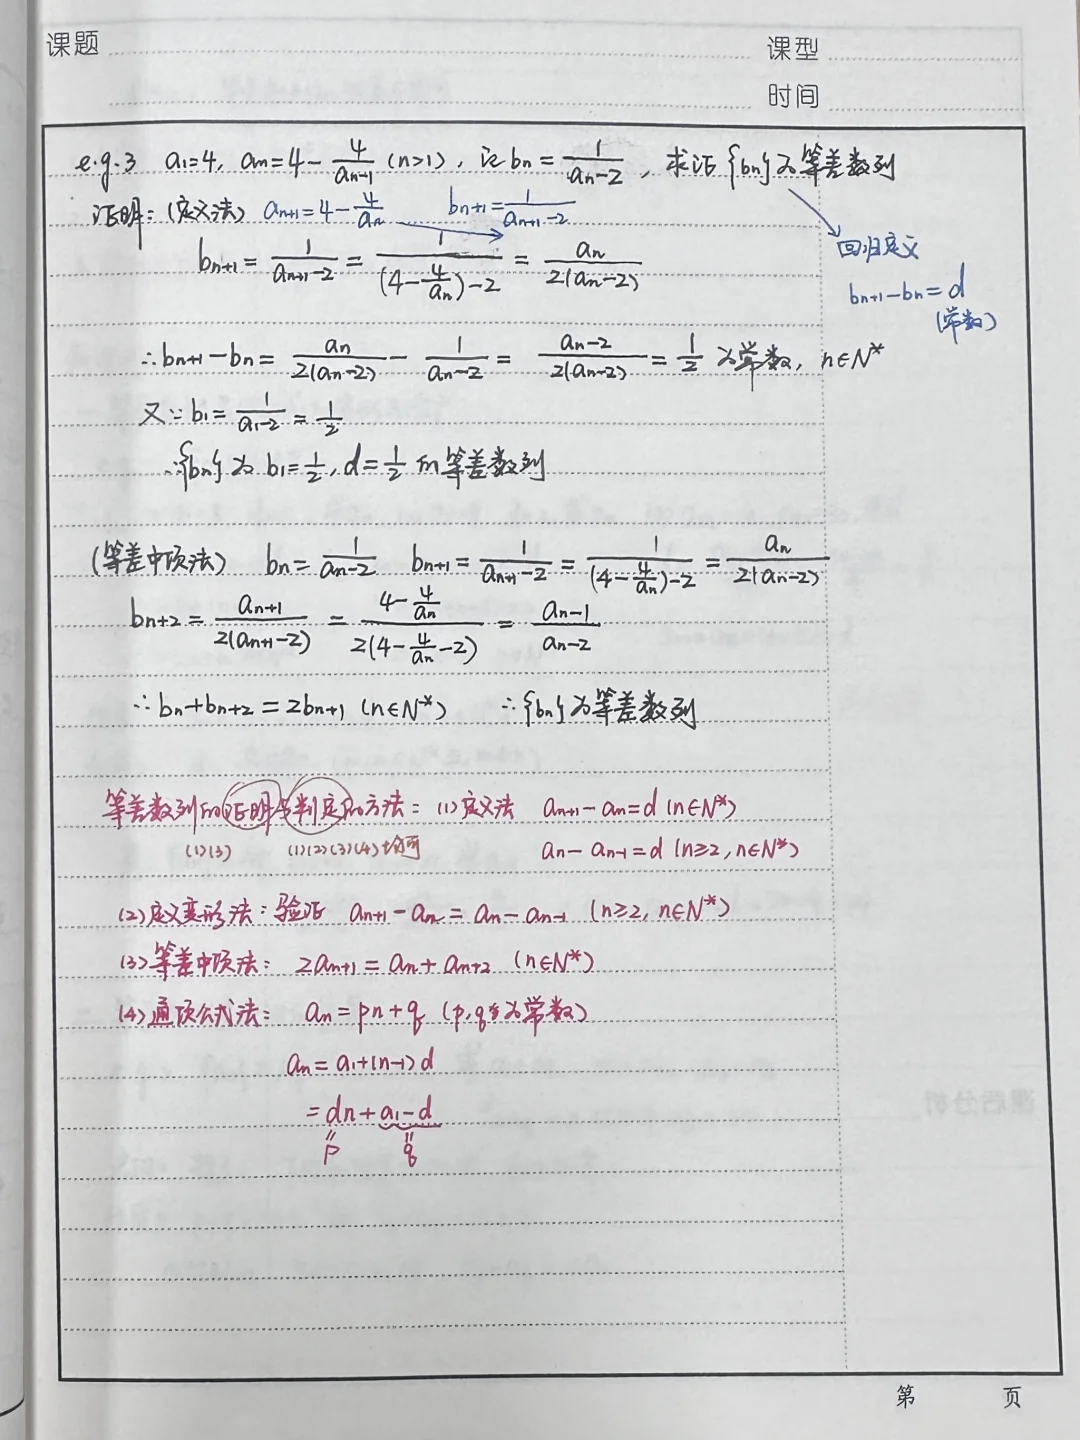 课题
课型
时间
e.g.3 a₁=4, aₙ=4-4/aₙ₋₁ (n>1), 记bₙ=1/(aₙ-2), 求证{bₙ}为等差数列
证明:(定义法) aₙ₊₁=4-4/aₙ bₙ₊₁=1/(aₙ₊₁-2)
回归定义
bₙ₊₁=1/(aₙ₊₁-2)=1/((4-4/aₙ)-2)=aₙ/2(aₙ-2)
bₙ₊₁-bₙ=d
(常数)
∴bₙ₊₁-bₙ=aₙ/2(aₙ-2)-1/(aₙ-2)=(aₙ-2)/2(aₙ-2)=1/2为常数, n∈N*
又∵b₁=1/(a₁-2)=1/2
∴{bₙ}为b₁=1/2, d=1/2的等差数列
(等差中项法) bₙ=1/(aₙ-2) bₙ₊₁=1/(aₙ₊₁-2)=1/((4-4/aₙ)-2)=aₙ/2(aₙ-2)
bₙ₊₂=aₙ₊₁/2(aₙ₊₁-2)=(4-4/aₙ)/2(4-4/aₙ-2)=(aₙ-1)/(aₙ-2)
∴bₙ+bₙ₊₂=2bₙ₊₁ (n∈N*) ∴{bₙ}为等差数列
等差数列的证明与判定的方法:(1)定义法 aₙ₊₁-aₙ=d (n∈N*)
(1)(3) (1)(2)(3)(4)均可 aₙ-aₙ₋₁=d (n≥2, n∈N*)
(2)定义变形法:验证 aₙ₊₁-aₙ=aₙ-aₙ₋₁ (n≥2, n∈N*)
(3)等差中项法: 2aₙ₊₁=aₙ+aₙ₊₂ (n∈N*)
(4)通项公式法: aₙ=pn+q (p,q为常数)
aₙ=a₁+(n-1)d
=dn+a₁-d
p q
第 页